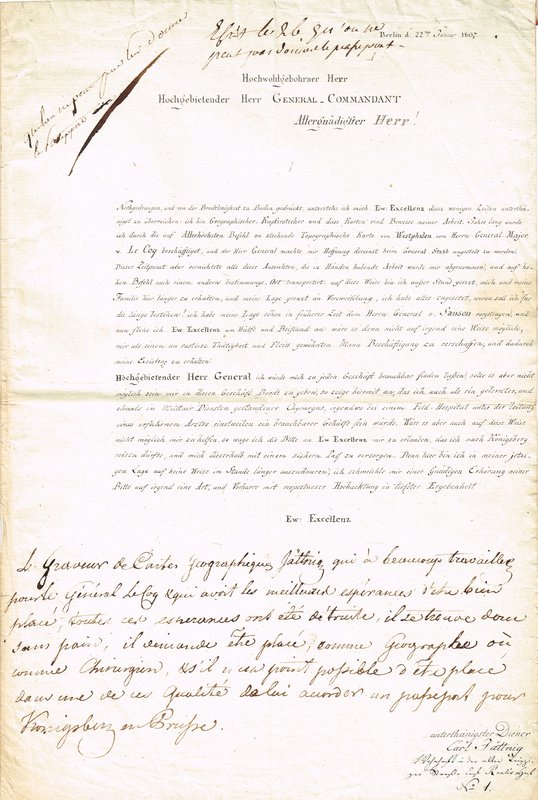 Berlin d. 22ten Januar 1807.
peut pas donner le passeport.
Hochwohlgebohrner Herr
Hochgebietender Herr General-Commandant
Allergnädigster Herr!
Nothgedrungen, und von der Brodtlosigkeit zu Boden gedrückt, unterstehe ich mich Ew: Excellenz diese weniger Zeilen unterthä-
nigst zu überreichen: ich bin Geographischer Kupferstecher und diese Karten sind Beweise meiner Arbeit. Jahre lang wurde
ich durch die auf Allerhöchsten Befehl zu stechende Topographische Karte von Westphalen vom Herrn General-Major
v. Le Coq beschäftiget, und der Herr General machte mir Hoffnung dereinst beim General Staab angestellt zu werden.
Dieser Zeitpunct aber vernichtete alle diese Aussichten, die in Händen habende Arbeit wurde mir abgenommen, und auf ho-
hen Befehl nach einem andern bestimmungs Ort transportiret; auf diese Weise bin ich außer Stand gesezt, mich und meine
Familie hier länger zu erhalten, und meine Lage grenzt an Verzweiflung, ich habe alles zugesetzt, wovon soll ich für
die Länge bestehen! ich habe meine Lage schon in früherer Zeit dem Herrn General v. Sanson vorgetragen, und
nun flehe ich Ew Excellenz um Hülfe und Beistand an: wäre es denn nicht auf irgend eine Weise möglich,
mir als einem an rastlose Thätigkeit und Fleiss gewöhnten Mann Beschäftigung zu verschaffen, und dadurch
meine Existenz zu erhalten.
Hochgebietender Herr General ich würde mich zu jeden Geschäft brauchbar finden laßen, solte es aber nicht
möglich sein mir in diesen Geschäft Brodt zu geben, so zeige hiermit an, das ich auch als ein gelernter, und
ehmals in Militair Diensten gestandener Chyrurgus, irgendwo bei einem Feld-Hospital unter der Leitung
eines erfahrenen Arztes einstweilen ein brauchbarer Gehülfe sein würde. Wäre es aber auch auf diese Weise
nicht möglich mir zu helfen, so wage ich die Bitte an Ew Excellenz mir zu erlauben, das ich nach Königsberg
reisen dürfte, und mich dieserhalb mit einem sichern Paß zu versorgen. Denn hier bin ich in meiner jetzi-
gen Lage auf keine Weise im Stande länger auszudauren, ich schmeichle mir einer Gnädigen Erhörung meiner
Bitte auf irgend eine Art, und Verharre mit respectueuser Hochachtung in tiefster Ergebenheit
Ew: Excellenz
Le Graveur de Cartes géographiques Jättnig qui à beaucoup travaillez
pour le Général Le Coq & qui avoit les meilleures espérances d'etre bien
placé, toutes ces esperances ont été détruite, il se trouve donc
sans pain, il demande etre placé, comme Géographe où
comme Chirurgien, & s'il n'en point possible d'etre placé
dans une de ces Qualité de lui accorder un passeport pour
Königsberg en Prusse.
unterthänigster Diener
Carl Jättnig
No 1.